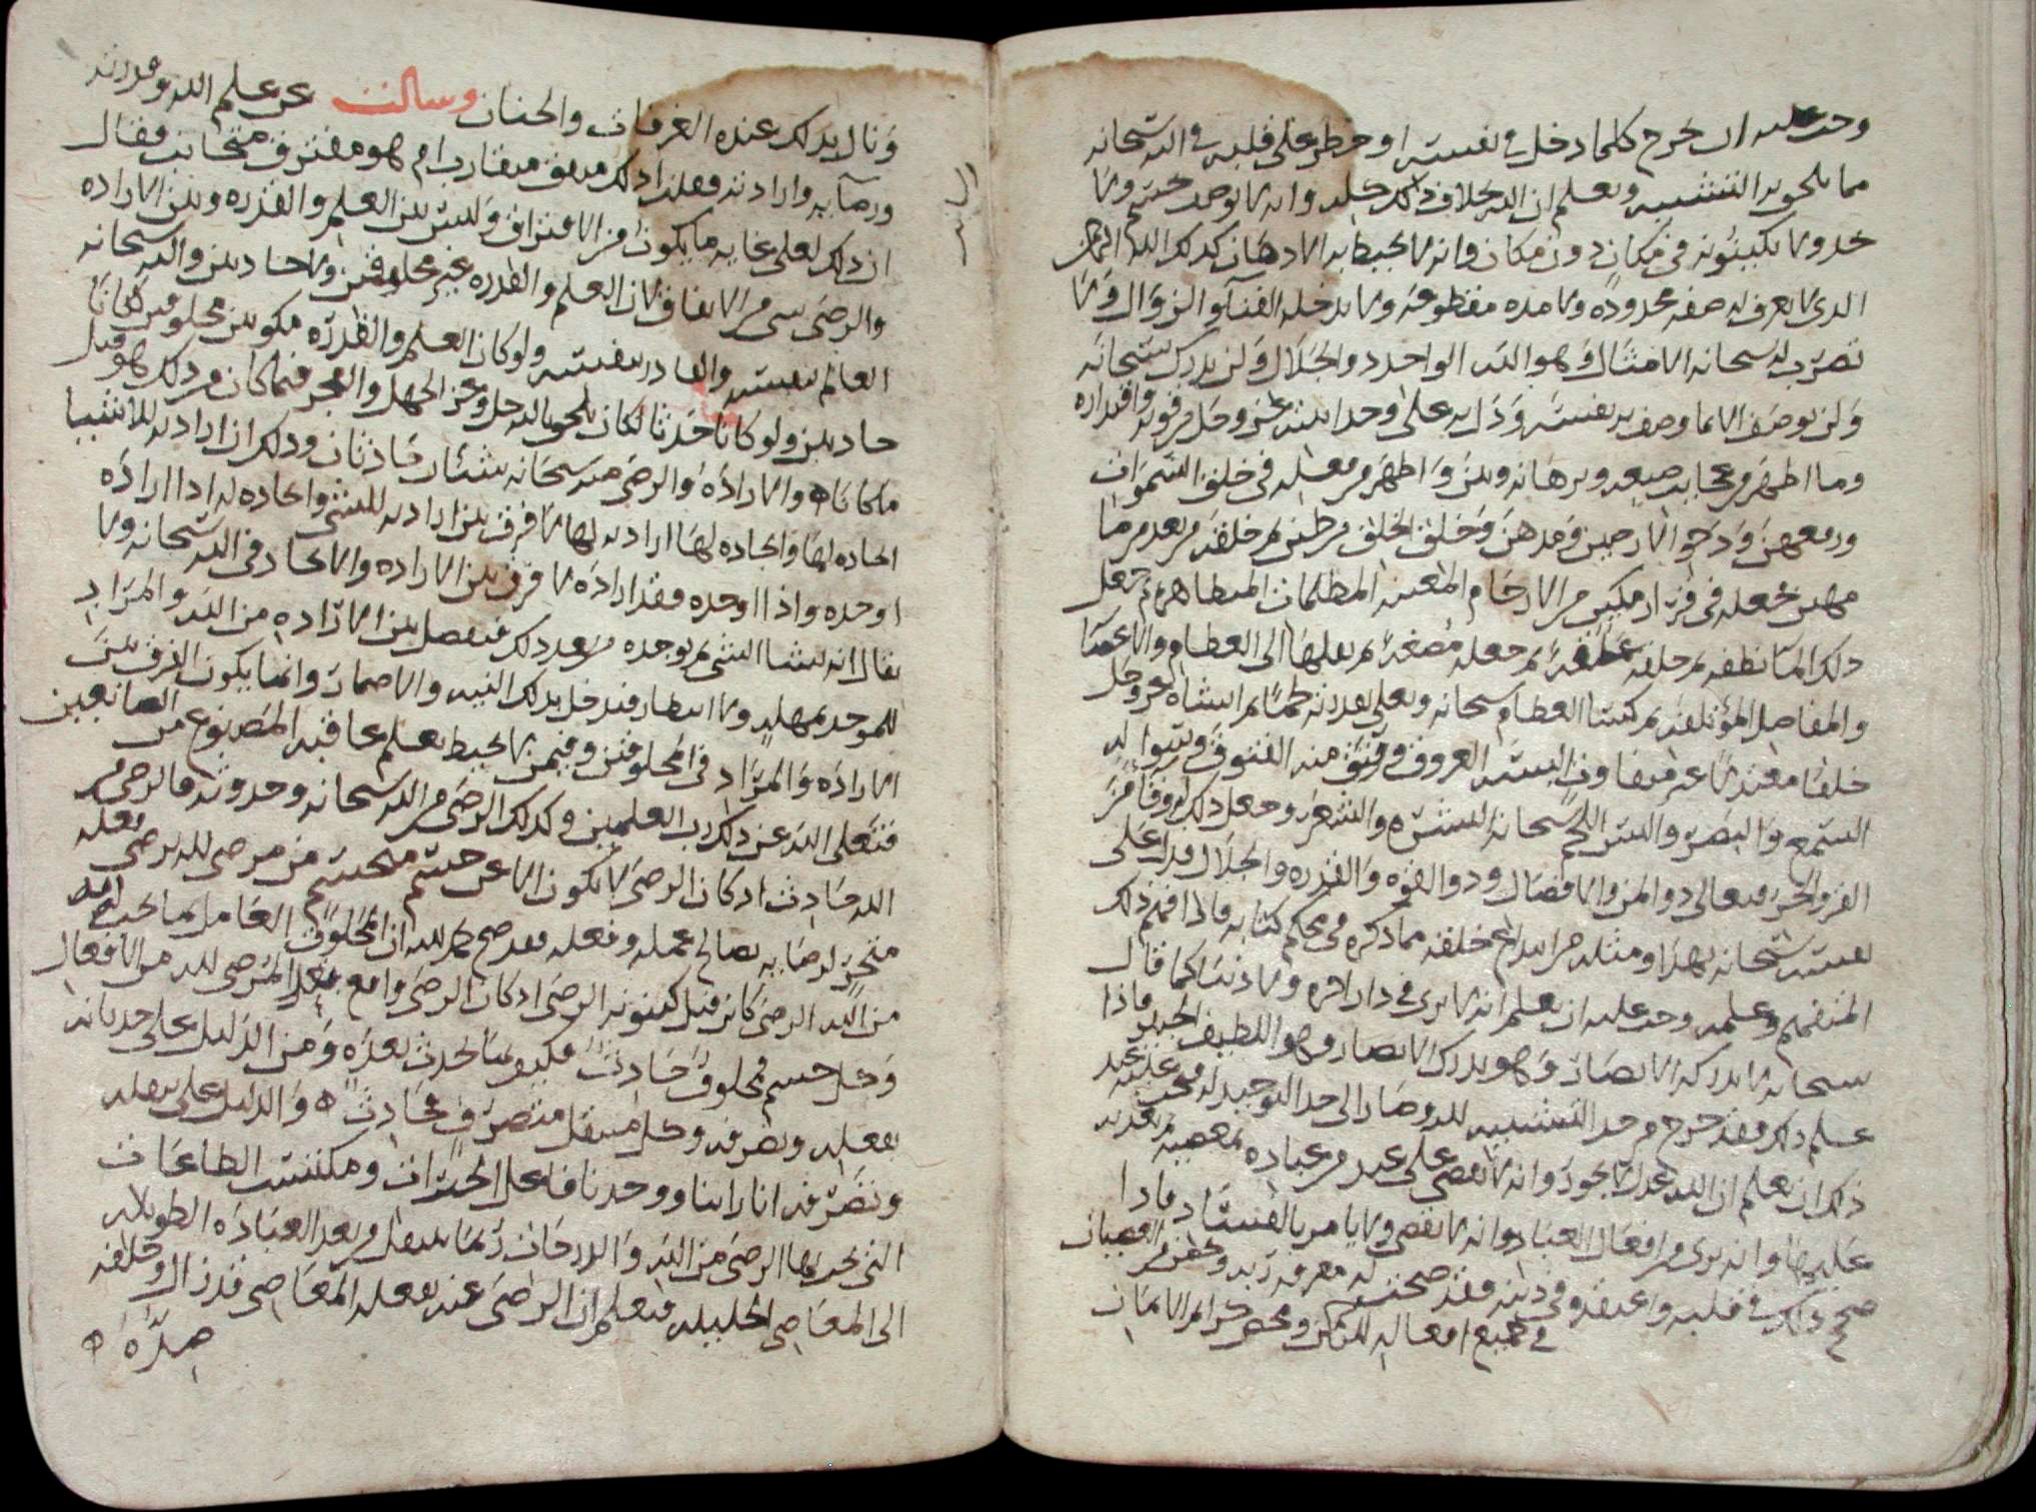 وحب عليه ان يخرج كلما دخل في نفسه او خطر على قلبه في الله سبحانه
مما يلحق به التشبيه ويعلم ان الله بخلاف ذلك كله وانه لا يوصف بجسم ولا
حد ولا بكينونه في مكان دون مكان وانه لا يحيط به الاذهان كذلك الله الرحمن
الذي لا يعرف له صفه محدوده ولا مده مقطوعه ولا يدخله الفنآ والزوال ولا
تضرب له سبحانه الامثال وهو الله الواحد ذو الجلال ولن يدرك سبحانه
ولن يوصف الا بما وصف به نفسه ودل به على وحدانيته عز وجل من قوته واقتداره
وما اظهر من عجايب صنعه وبرهانه وبين واظهر من فعله في خلق السموات
ورفعهن ودحو الارضين ومدهن وخلق الخلق من طين ثم خلقه من بعد من ما
مهين فجعله في قرار مكين من الارحام المظلمات ثم جعل
ذلك الما نطفه ثم خلقه علقه ثم جعله مضغه ثم نقلها الى العظام والاعضا
والمفاصل المؤتلفه ثم كسا العظام سبحانه وتعلى بقدرته لحما ثم انشاه عز وجل
خلقا مقتدرا غير متفاوت البسه العروق وفتق منه الفتوق وسوا له
السمع والبصر والبس اللحم سبحانه البشره والشعر وجعل ذلك له وقا من
القر والحر فتعالى ذو المن والافضال وذو القوه والقدره والجلال فدل على
نفسه سبحانه بهذا ومثله من ابداع خلقه مما ذكره في محكم كتابه فاذا فهم ذلك
المتفهم وعلمه وجب عليه ان يعلم انه لا يرى في دار اخره ولا دنيا كما قال
سبحانه لا تدركه الابصار وهو يدرك الابصار وهو اللطيف الخبير فاذا
علم ذلك فقد خرج من حد التشبيه لله وصار الى حد التوحيد له فيجب عليه بعد
ذلك ان يعلم ان الله عدل لا يجور وانه لا يقضي على عبد من عباده بمعصيه ثم يعذبه
عليها وانه بري من افعال العباد وانه لا يقضي ولا يامر بالفساد فاذا
صح ذلك في قلبه واعتقده في دينه فقد صحت له معرفه ربه وخرج من العصيان
في جميع افعاله للرحمن ومحض كرايم الايمان
ونال بذلك عنده الغرفات والجنان وسالت عن علم الله وقدرته
ورضآيه وارادته فقلت اذلك متفق متقارب ام هو مفترق متجانب فقال
ان ذلك لعلى غايه ما يكون من الافتراق وليس بين العلم والقدره وبين الاراده
والرضى شي من الاتفاق لان العلم والقدره غير مخلوقين ولا حادثين والله سبحانه
العالم بنفسه والقادر بنفسه ولو كان العلم والقدره مكونين مخلوقين لكانا
حادثين ولو كانا حدثا لكان يلحق بالله جل وعز الجهل والعجز فيما كان من ذلك هو قبل
ما كانا ه والاراده والرضى منه سبحانه شيئان حادثان وذلك ان ارادته للاشيا
ايجاده لها وايجاده لها ارادته لها لا فرق بين ارادته للشي وايجاده له اذا اراده
اوجده واذا اوجده فقد اراده لا فرق بين الاراده والايجاد في الله سبحانه ولا
يقال انه يشا الشي ثم يوجده من بعد ذلك فيفصل بين الاراده من الله والمراد
للموجد بمهله ولا انتظار فيدخل بذلك النيه والاضمار وانما يكون الفرق بين
الاراده والمراد في المخلوقين وفيمن لا يحيط بعلم عاقبه المصنوع من الصانعين
فتعلى الله عن ذلك رب العلمين وكذلك الرضى من الله سبحانه وحدوثه فالرضى من
الله حادث اذ كان الرضى لا يكون الا عن من مرضي لله برضى فعله
لرضايه بصالح عمله وفعله فقد صح لله ان المخلوق العامل بما يجب له
من الله الرضى كائن قبل كينونه الرضى اذ كان الرضى واقع بفعل المرضي لله من الافعال
وكل جسم مخلوق حادث فكيف بما يحدث بعده ومن الدليل على حدثانه
بفعله وتصرفه وكل متنقل متصرف محادث ه والدليل على تنقله
وتصرفه انا راينا ووجدنا فاعل الخيرات ومكتسب الطاعات
التي يجب بها الرضى من الله والدرجات ربما ينتقل من بعد العباده الطويله
الى المعاصي الجليله فنعلم ان الرضى عنه بفعله المعاصي قد زال وخلفه
ضده ه